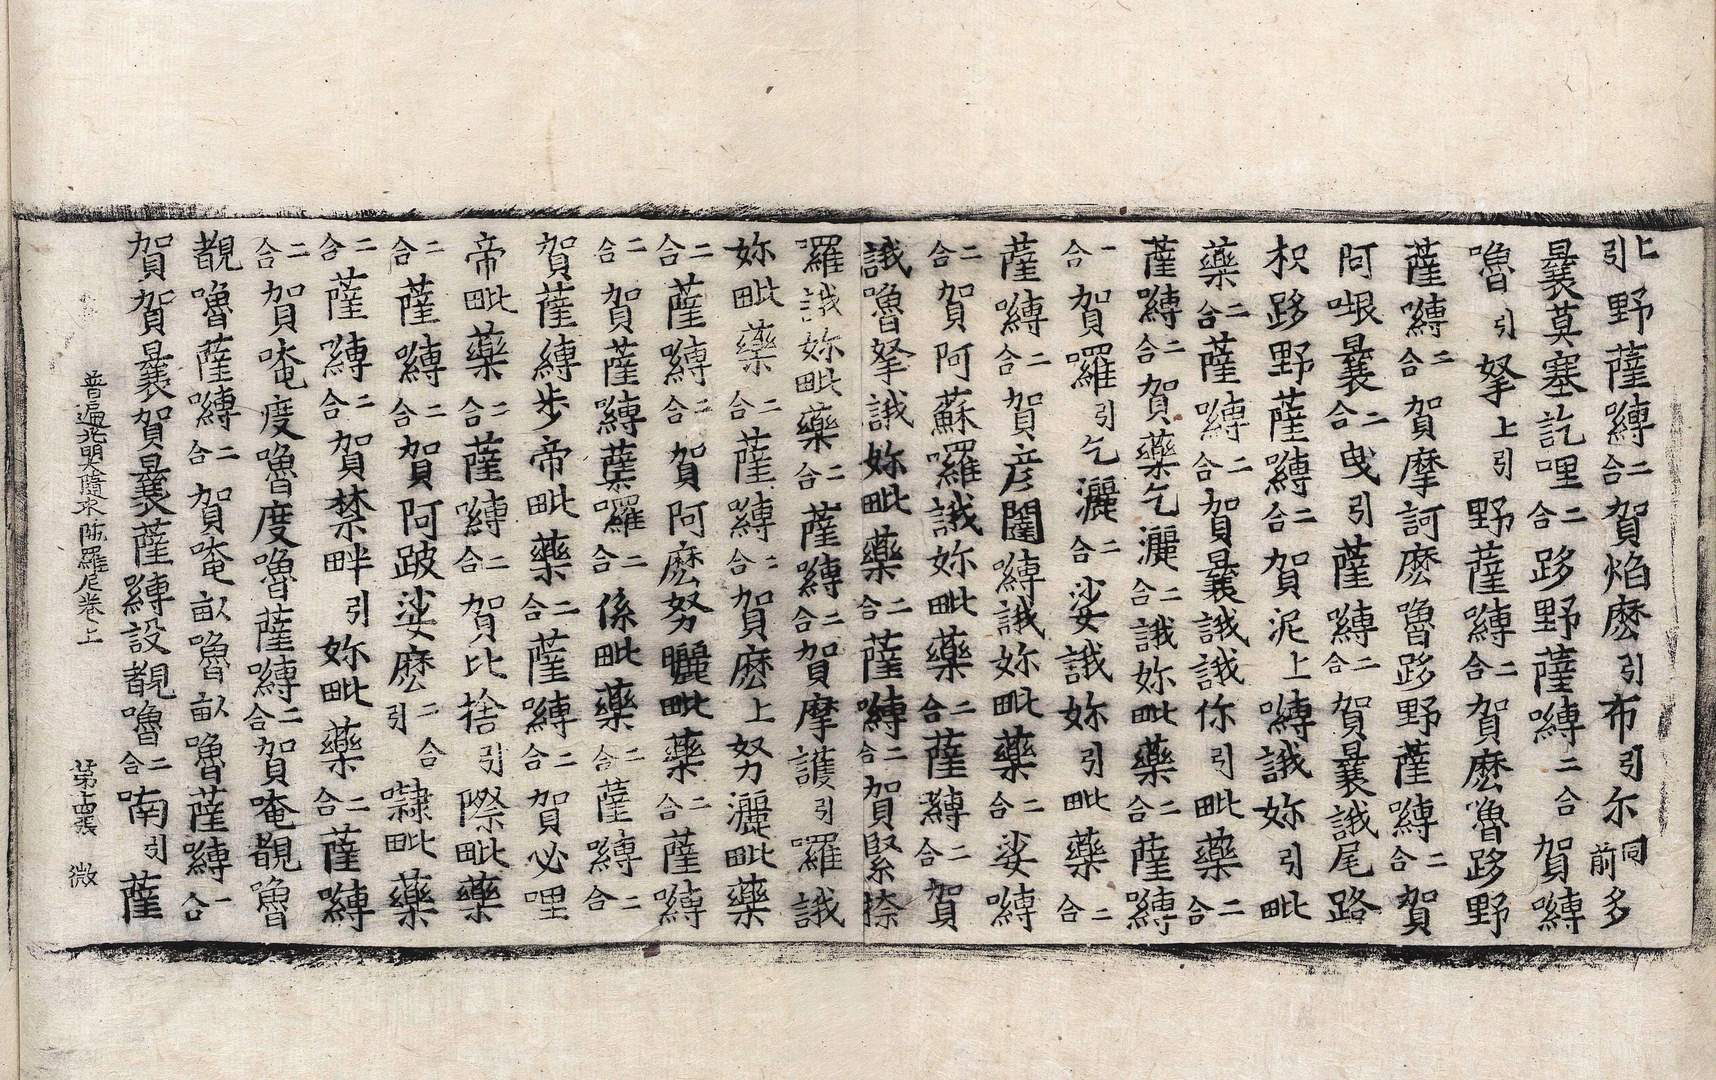 引上野薩嚩二合賀焰麽引布引尔同前多
曩莫塞訖哩二合跢野薩嚩二合賀嚩
嚕引拏上引野薩嚩二合賀麽嚕跢野
薩嚩二合賀摩訶麽嚕跢野薩嚩二合賀
阿哏曩二合曳引薩嚩二合賀曩誐尾路
枳跢野薩嚩二合賀泥上嚩誐妳引毗
藥二合薩嚩二合賀曩誐誐你引毗藥二合
薩嚩二合賀藥乞灑二合誐妳毗藥二合薩嚩
一合賀囉引乞灑二合娑誐妳引毗藥二合
薩嚩二合賀彦闥嚩誐妳毗藥二合娑嚩
二合賀阿蘇囉誐妳毗藥二合薩嚩二合賀
誐嚕拏誐妳毗藥二合薩嚩二合賀緊捺
羅誐妳毗藥二合薩嚩二合賀摩護引囉誐
妳毗藥二合薩嚩二合賀麽上努灑毗藥
二合薩嚩二合賀阿麽努曬毗藥二合薩嚩
二合賀薩嚩蘖囉二合係毗藥二合薩嚩二合
賀薩縛步帝毗藥二合薩嚩二合賀必哩
帝毗藥二合薩嚩二合賀比捨引際毗藥
二合薩嚩二合賀阿跛娑麽二合引㘑毗藥
二合薩嚩二合賀禁畔引妳毗藥二合薩嚩
二合賀唵度嚕度嚕薩嚩二合賀唵覩嚕
覩嚕薩嚩二合賀唵畝嚕畝嚕薩嚩一合
賀賀曩賀曩薩嚩設覩嚕二合喃引薩
普遍光明隨求陁羅尼卷上 第十四張 微